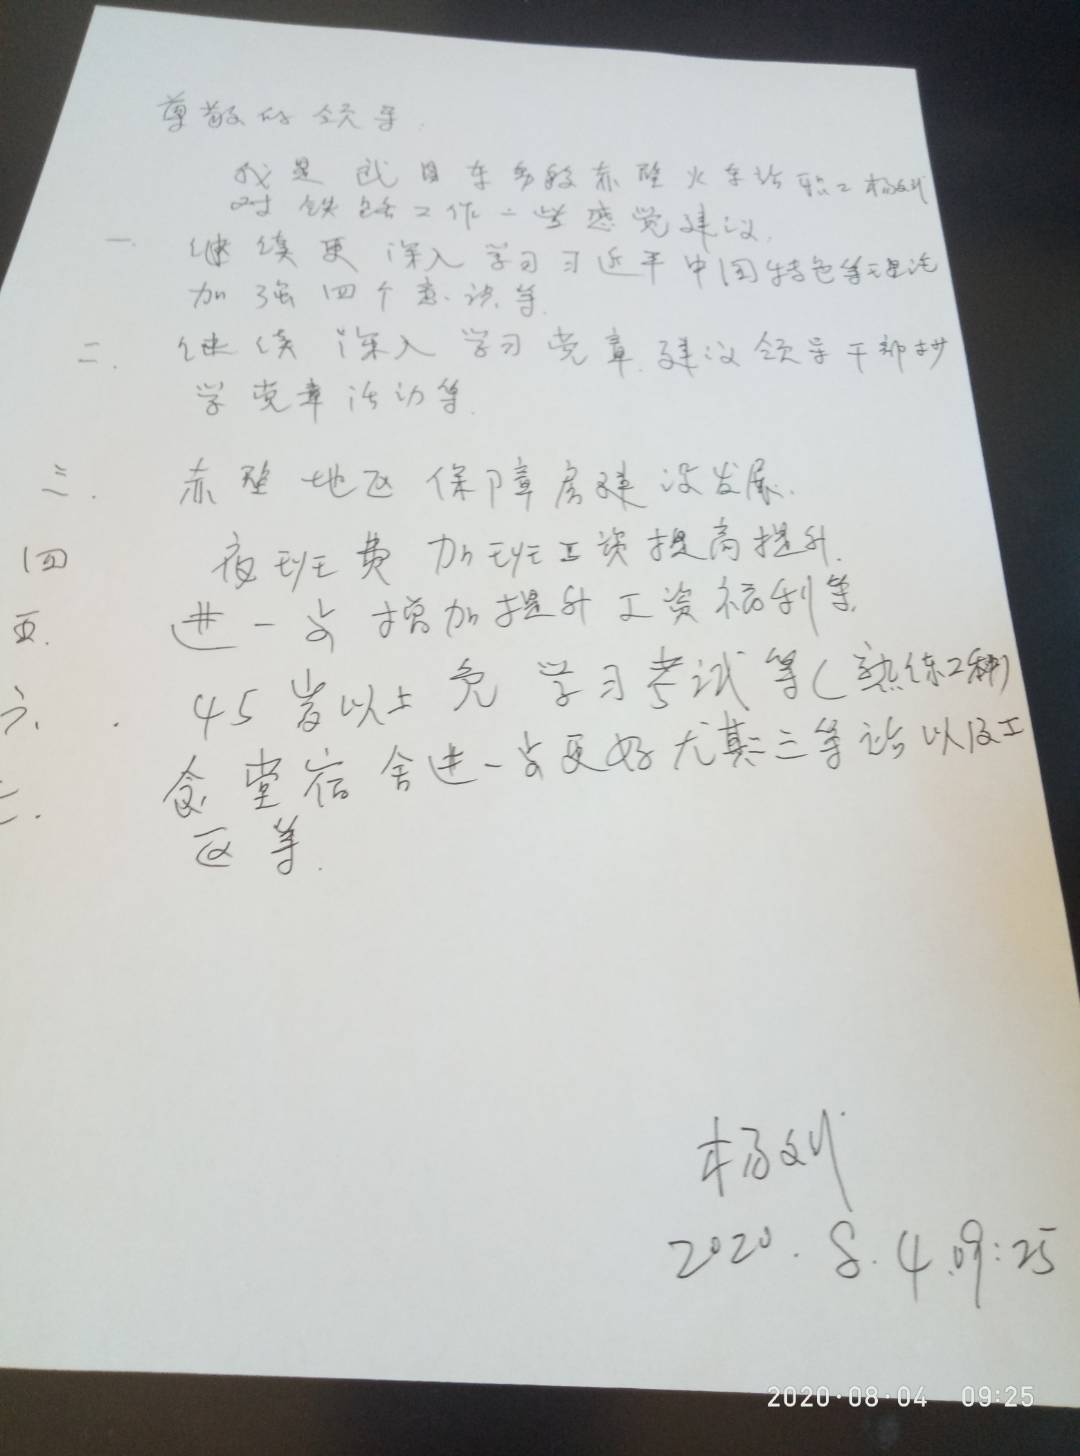 尊敬的领导.
我是武昌车务段赤壁火车站职工杨刘
对铁路工作一些感觉建议.
一. 继续更深入学习习近平中国特色等理论
加强四个意识等.
二. 继续深入学习党章.建议领导干部抄
学党章活动等.
三. 赤壁地区保障房建设发展.
四 夜班费加班工资提高提升.
五. 进一步增加提升工资福利等
六. 45岁以上免学习考试等(熟练工种)
七. 食堂宿舍进一步更好尤其三等站以及工
区等.
杨刘
2020.8.4.09:25
2020·08·04 09:25